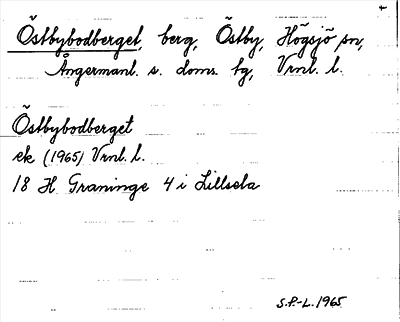 Östbybodberget, berg, Östby, Högsjö sn,
Ångermanl. s. doms. tg, Vrnl. l.
Östbybodberget
ek (1965) Vrnl. l.
18 H Graninge 4 i Lillsela
S.P.-L. 1965